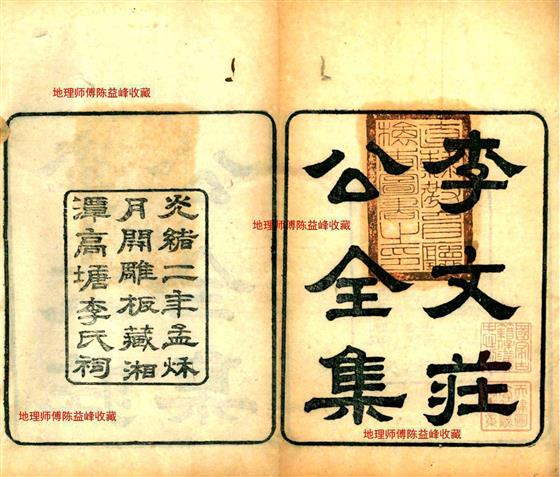 李文莊
公全集
光緒二年孟秌
月開雕板藏湘
潭高塘李氏祠
地理师傅陈益峰收藏
地理师傅陈益峰收藏
地理师傅陈益峰收藏
地理师傅陈益峰收藏